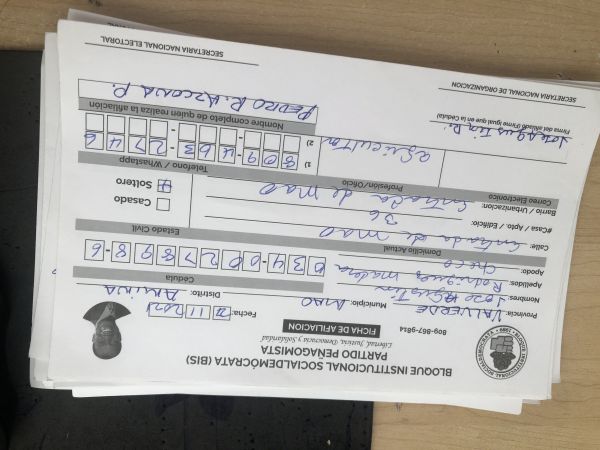 BLOQUE INSTITUCIONAL SOCIALDEMÓCRATA (BIS)
PARTIDO PEÑAGOMISTA
Libertad, Justicia, Democracia y Solidaridad
809-867-9814
FICHA DE AFILIACION
Fecha: 11 202
Provincia: VALVERDE Municipio: MAO Distrito: AMINA
Nombres: Jose Agustin
Cédula
Apellidos: Rodriguez madera
034-0027898-6
Apodo: Checo
Domicilio Actual
Estado Civil
Calle: Entrada de mao
Casado
#Casa / Apto. / Edificio: 36
Soltero
Barrio / Urbanizacion: Entrada de mao
Correo Electronico
Profesión/Oficio
Telefono / Whastapp
agricultor
1) 809-463-2746
2)
Jose Agustin Rdz
Firma del afiliado (Firmo igual que la Cédula)
Nombre completo de quién realiza la afiliación
PEDRO R. AZCONA P.
SECRETARIA NACIONAL DE ORGANIZACION
SECRETARIA NACIONAL ELECTORAL